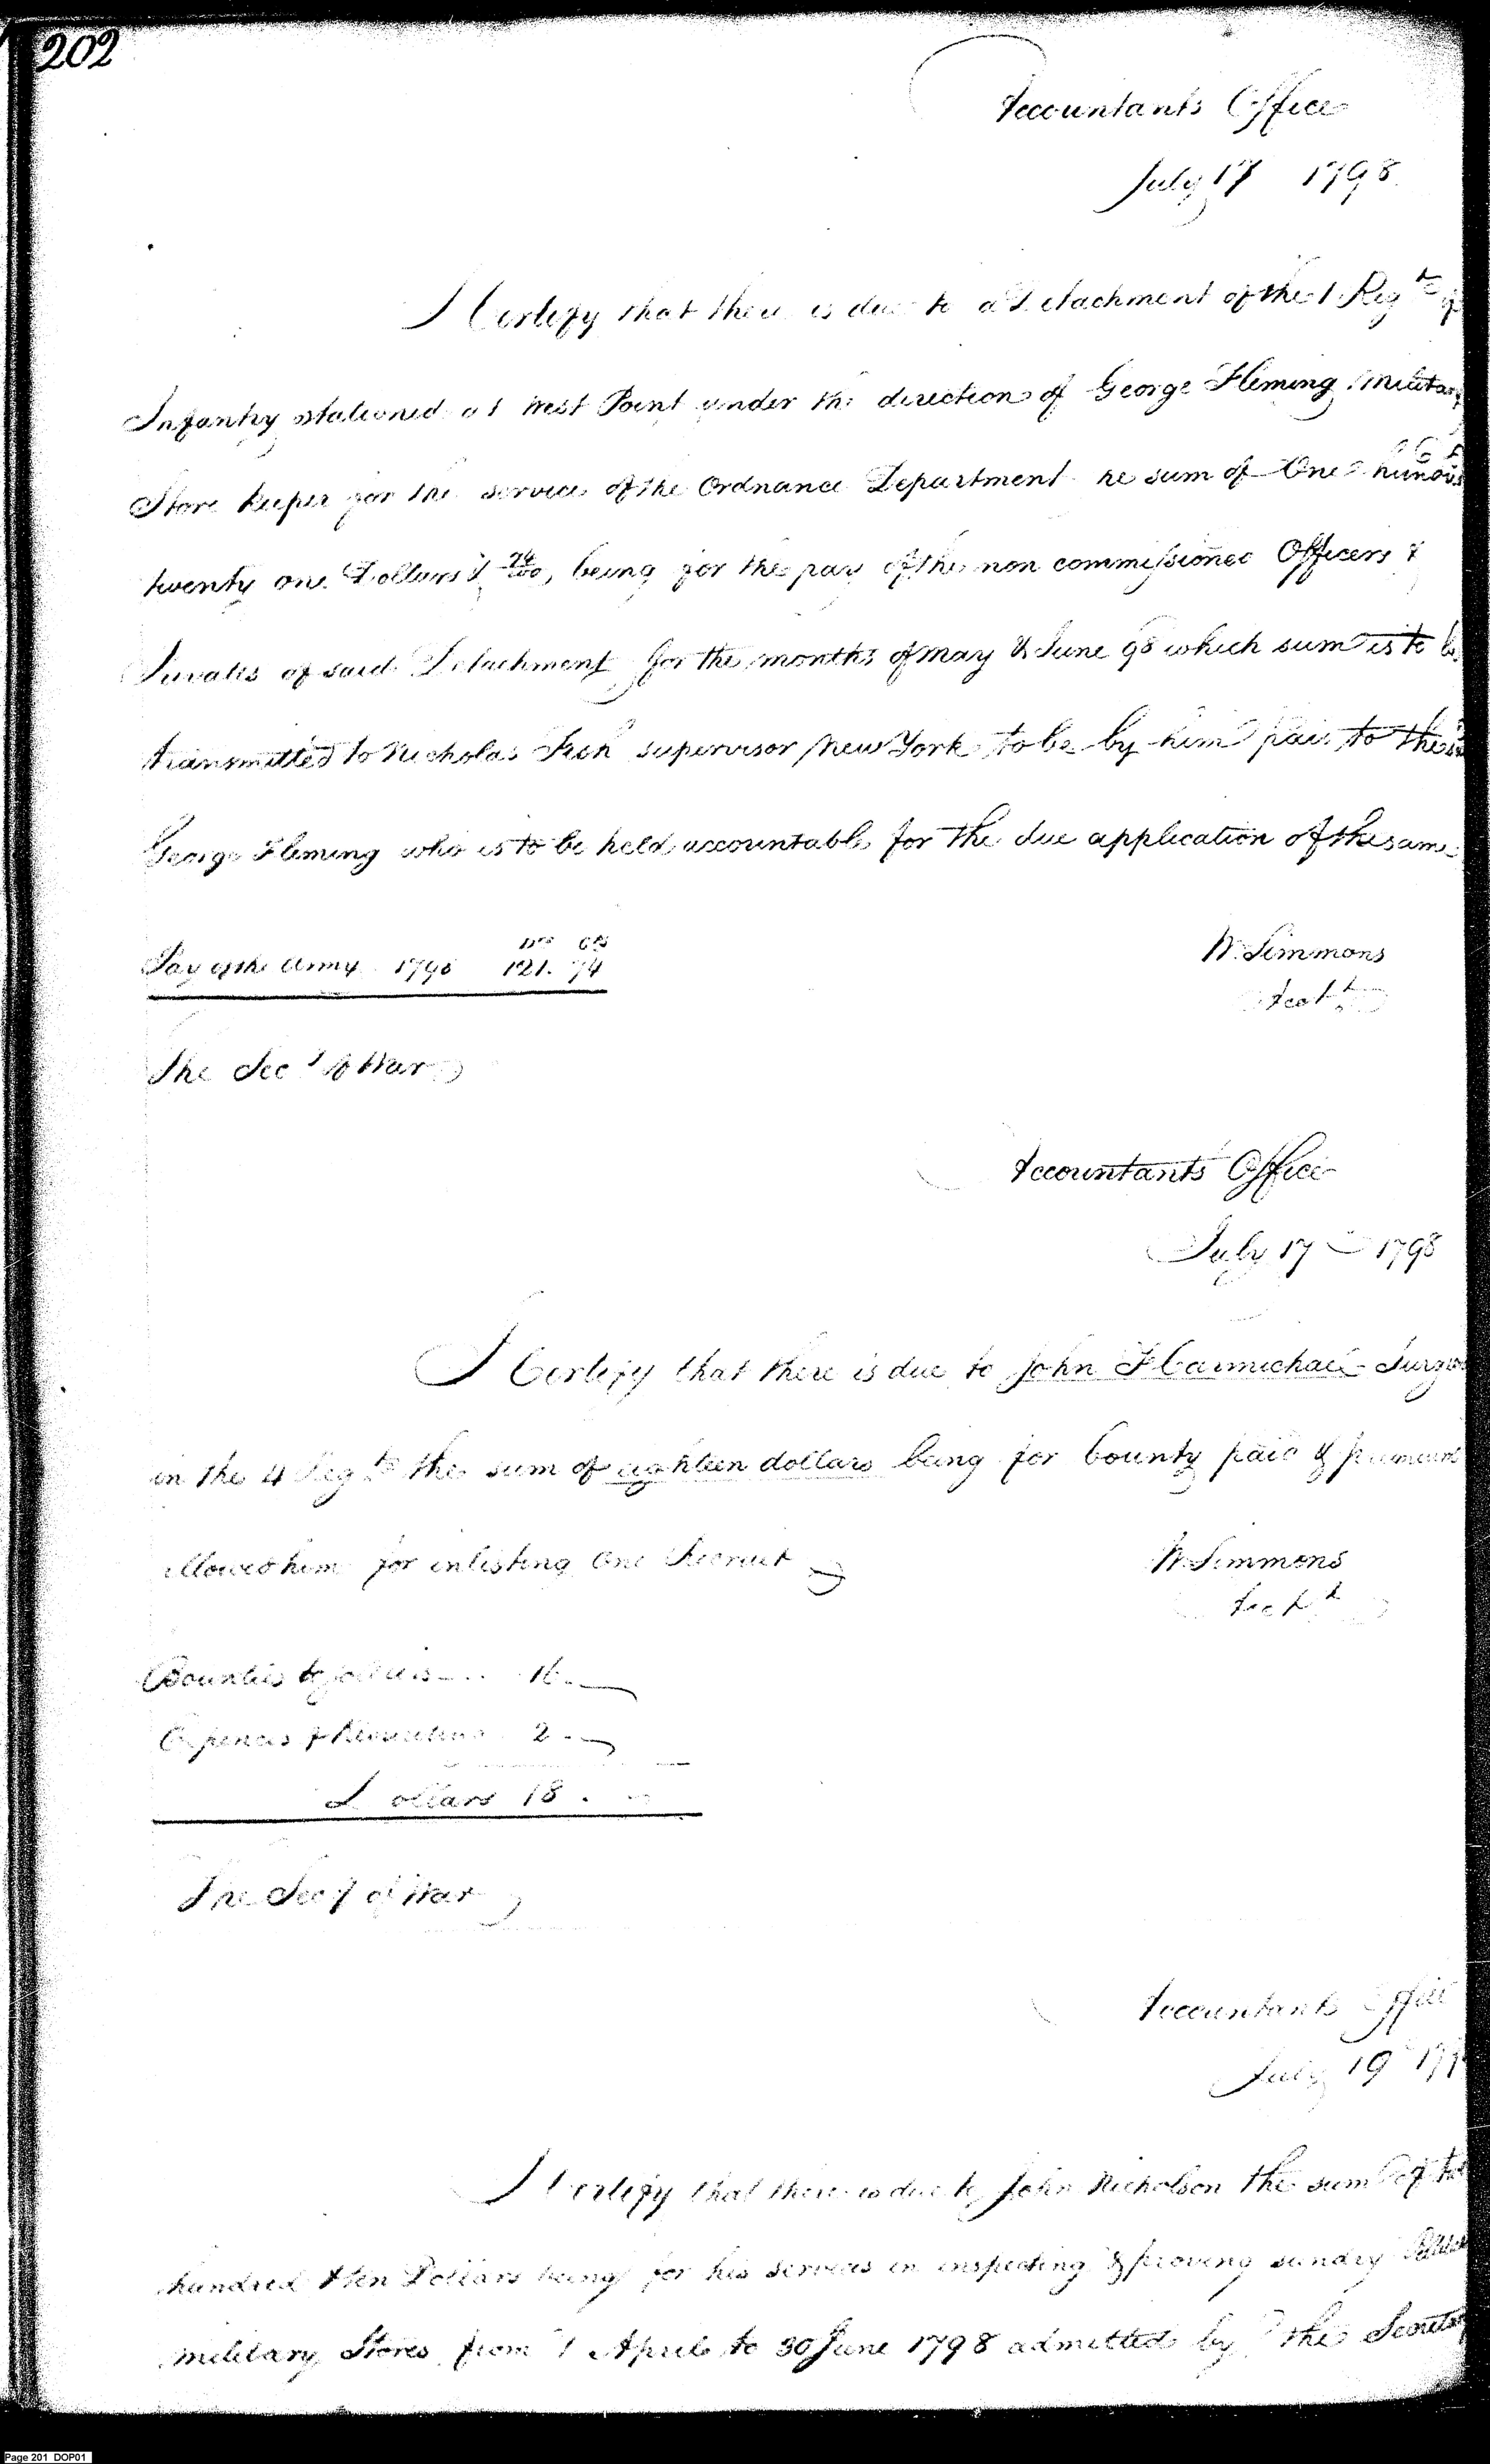 202
Accountants Office
July 17 1798
I Certify that there is due to a Detachment of the 1 Regt of
Infantry stationed at West Point under the direction of George Fleming Military
Store keeper for the service of the Ordnance Department he sum of One hundred
twenty one Dollars & 74/100, being for the pay of the non commissioned Officers &
Privates of said Detachment for the months of May & June 98 which sum is to be
transmitted to Nicholas Fish supervisor New York to be by him paid to the said
George Fleming who is to be held accountable for the due application of the same
Drs Cts
Pay of the Army 1798 121. 74
W. Simmons
Acctt
The Secy of War
Accountants Office
July 17 1798
I Certify that there is due to John F Carmichael Surgeon
in the 4 Regt the sum of eighteen dollars being for bounty paid & premium
allowed him for inlisting One Recruit
W. Simmons
Acctt
Bounties to soldiers 16.
Expences of Recruiting 2.
Dollars 18.
The Secy of War
Accountants Office
July 19 179
I Certify that there is due to John Nicholson the sum of two
hundred & ten Dollars being for his services in inspecting & proving sundry
military Stores from 1 April to 30 June 1798 admitted by the Secretary
Page 201 DOP01